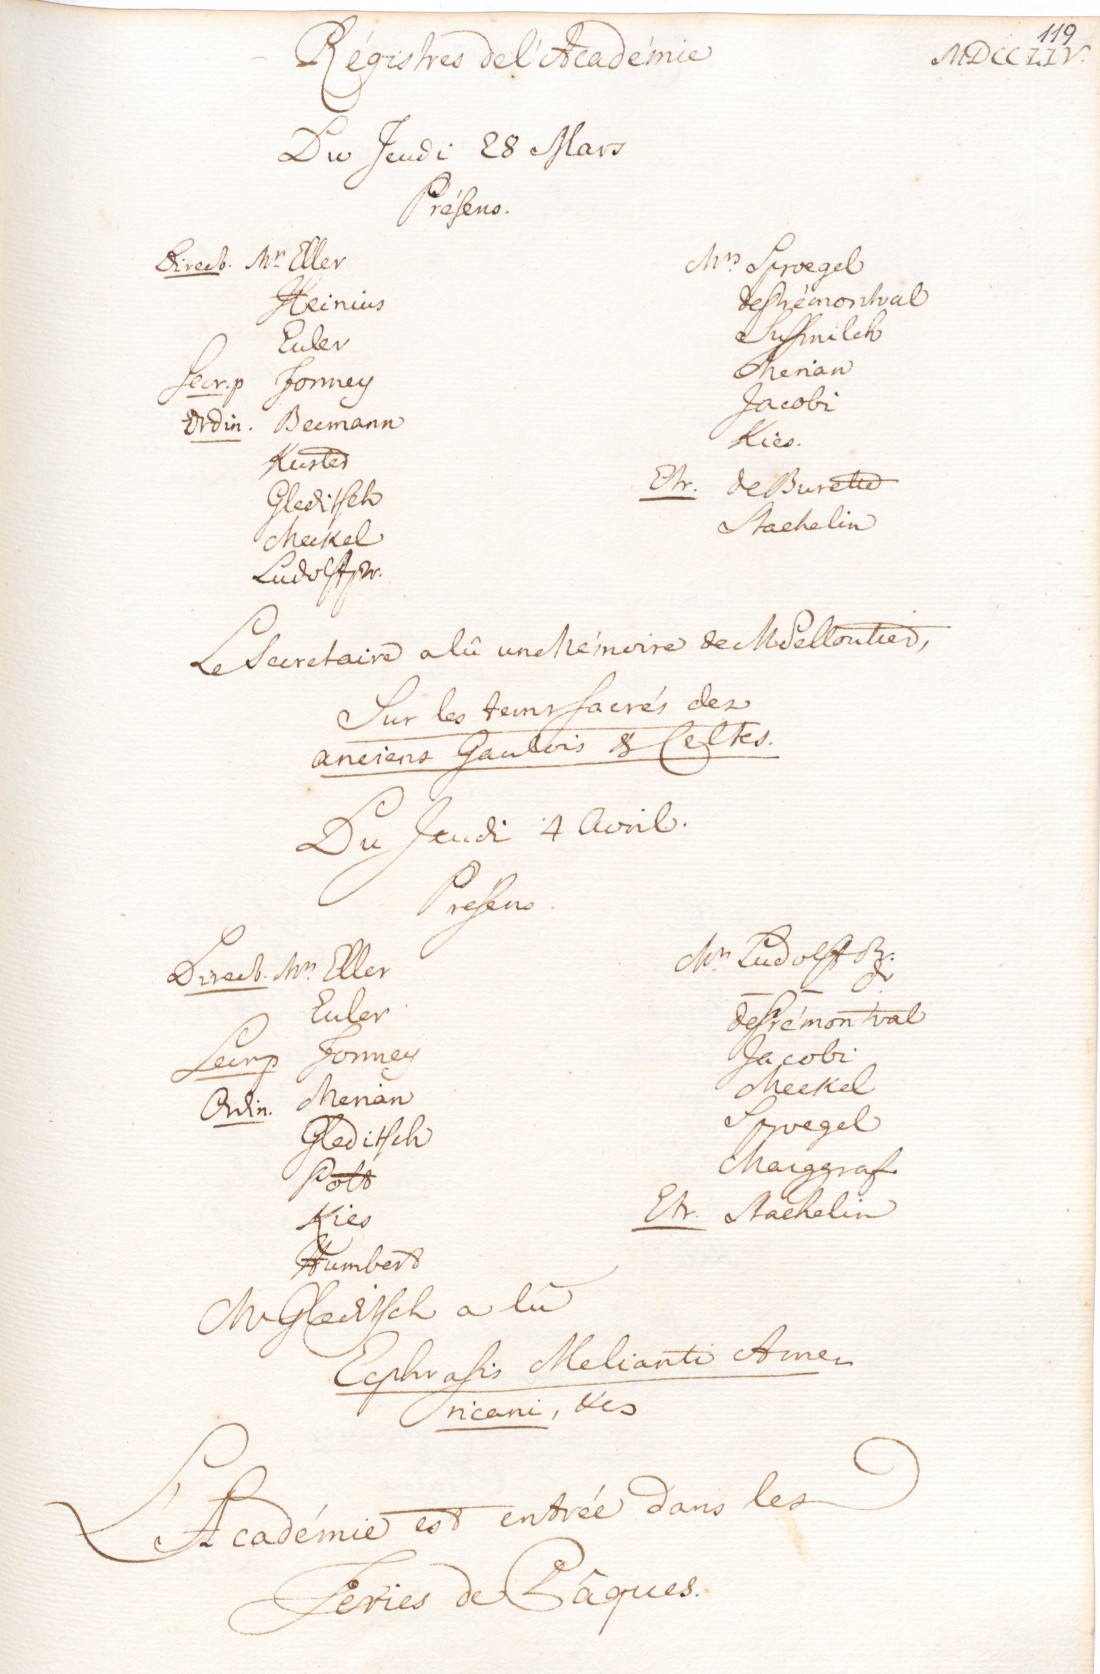 119
Régistres de l'Académie
MDCCLIV.
Du Jeudi 28 Mars
Présens.
Direct. Mrs Eller
Heinius
Euler
Secr. p Formey
Ordin. Becmann
Kuster
Gleditsch
Meckel
Ludolff Pr.
Mrs Sproegel
de Prémontval
Sussmilch
Merian
Jacobi
Kies.
Etr. de Burette
Staehelin
Le Secretaire a lû un Mémoire de M Pelloutier,
Sur les tems sacrés des
anciens Gaulois & Celtes.
Du Jeudi 4 Avril.
Presens.
Direct. Mrs Eller
Euler
Secr. p Formey
Ordin. Merian
Gleditsch
Pott
Kies
Humbert
Mrs Ludolff Pr.
de Prémontval
Jacobi
Meckel
Sproegel
Marggraf
Etr. Staehelin
Mr Gleditsch a lû
Ecphrasis Melianti Ame-
ricani, &c
L'Académie est entrée dans les
Feries de Pâques.